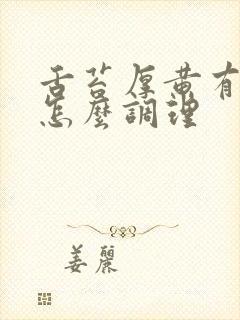 舌苔厚黄有
怎麼調理
姜麗